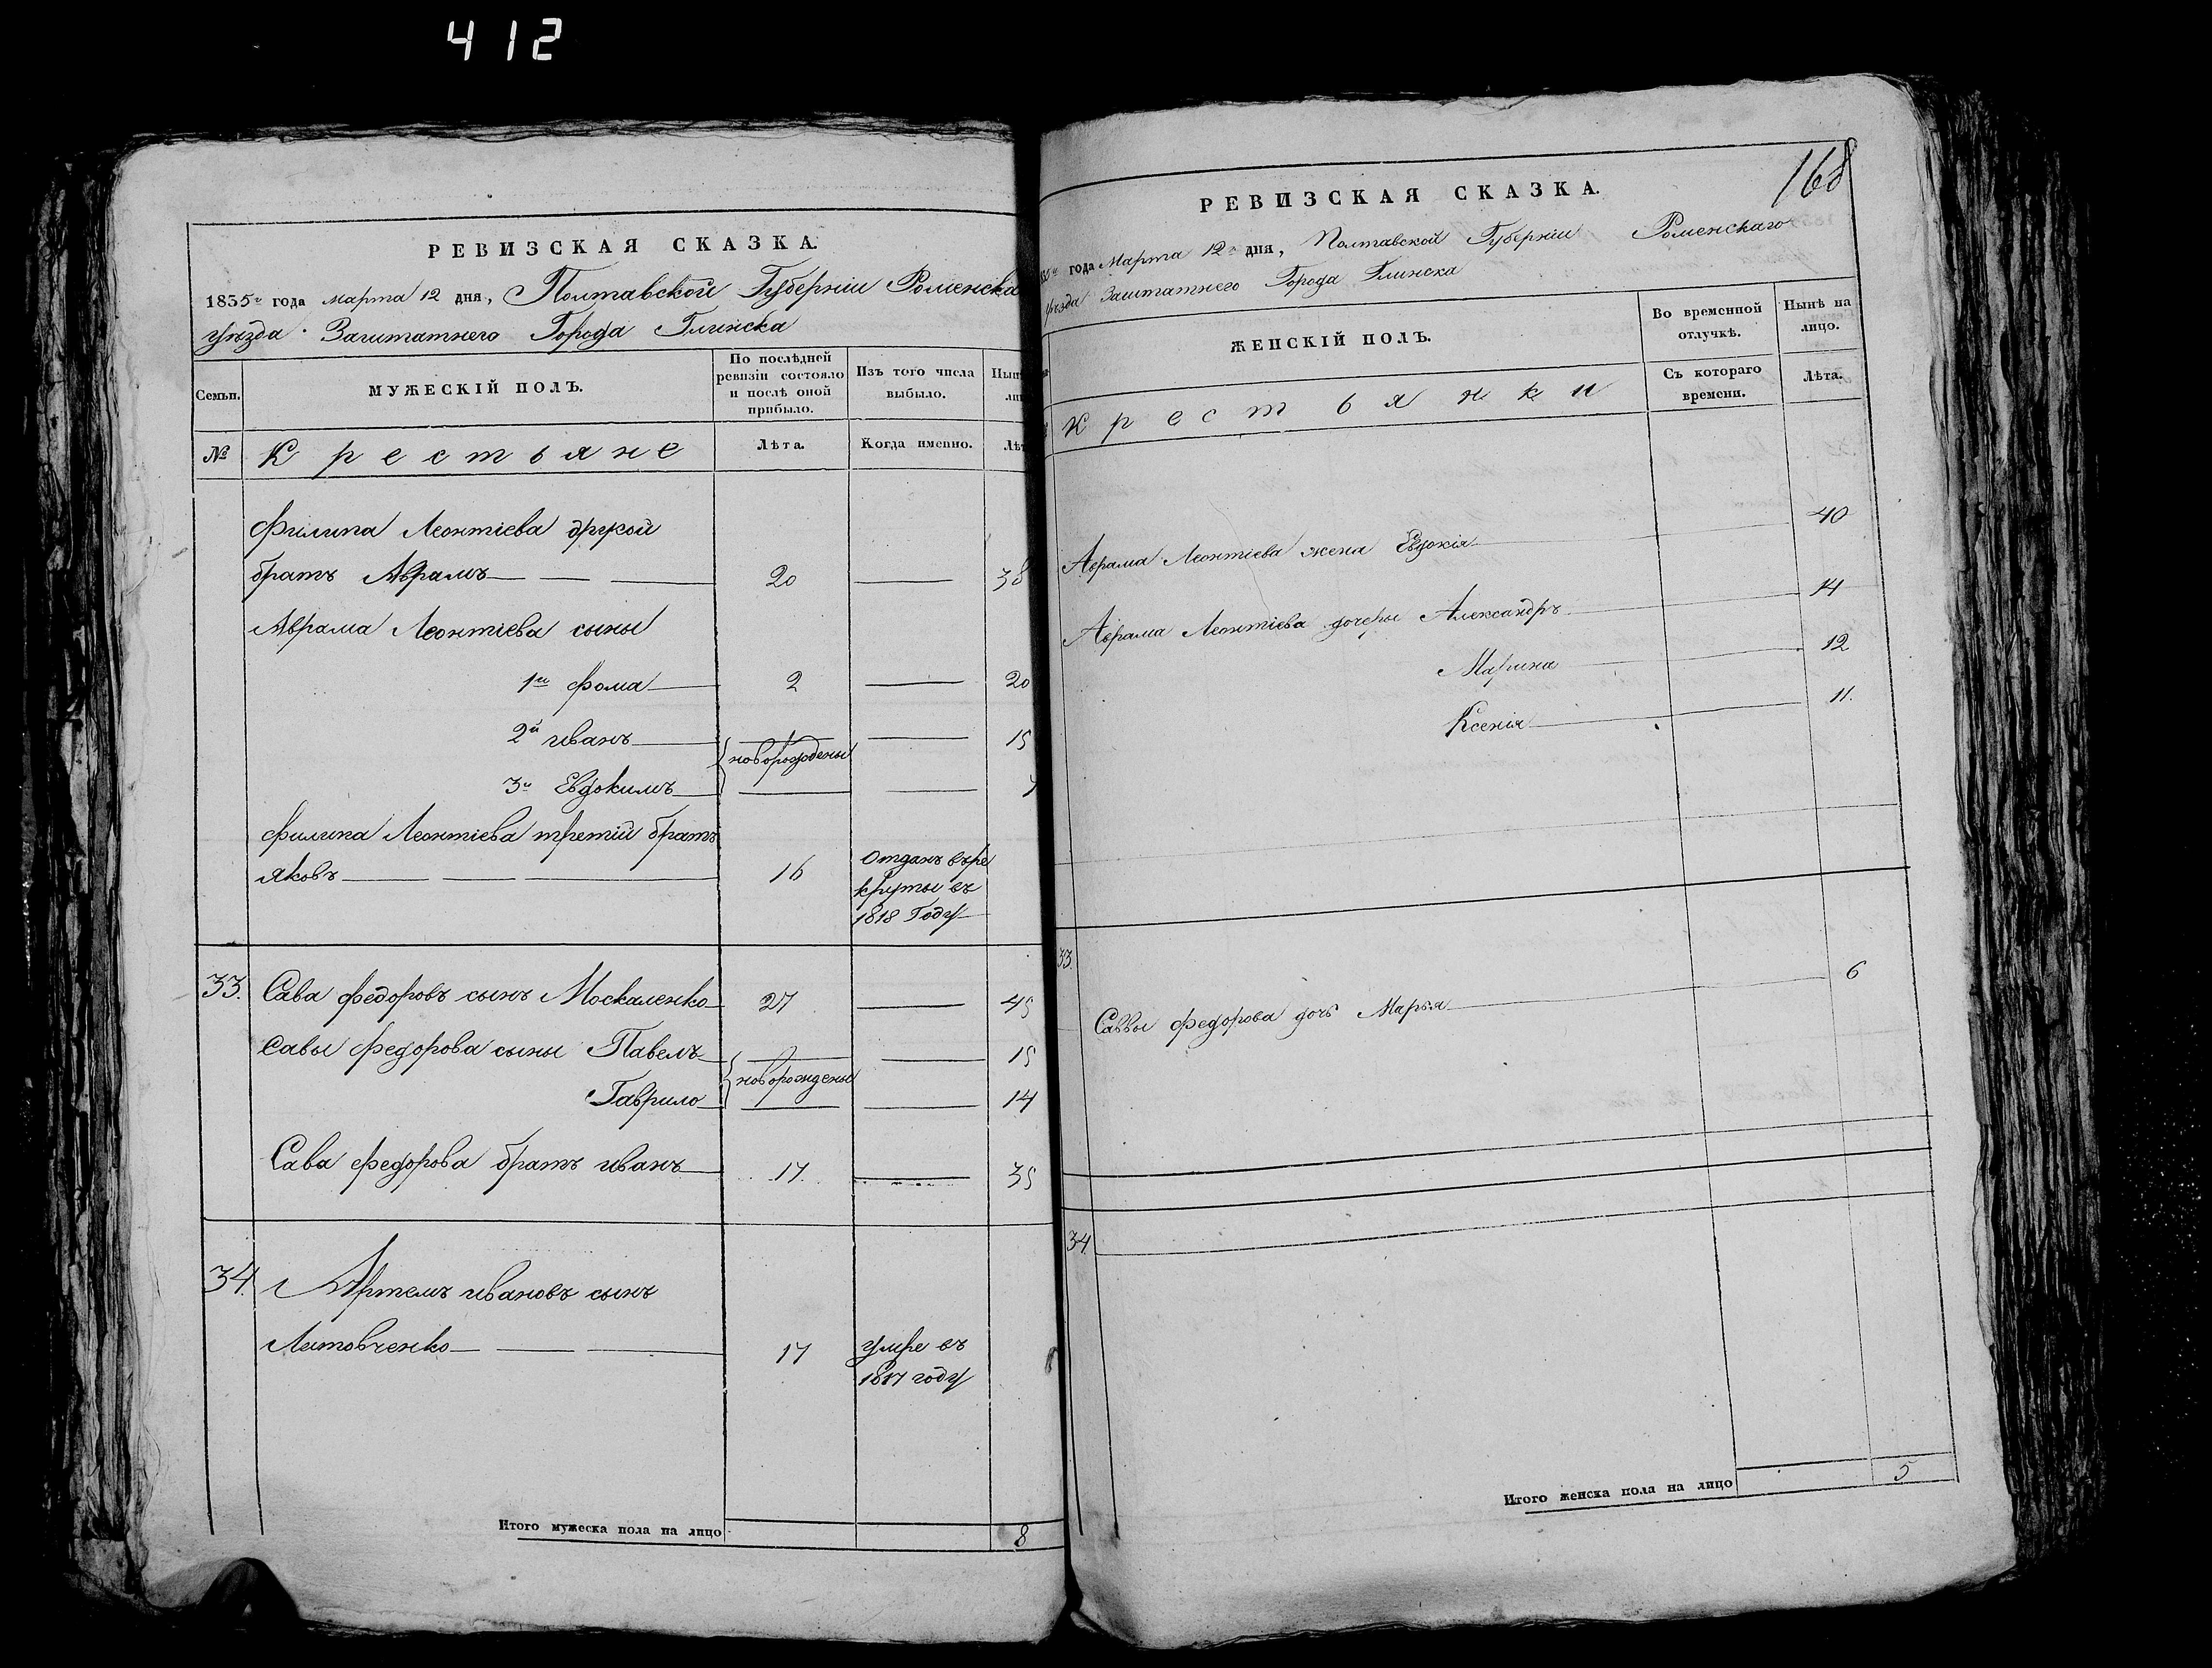 412
РЕВИЗСКАЯ СКАЗКА.
1835го года марта 12 дня, Полтавской Губерніи Роменска
уѣзда Заштатнего Города Глинска
Семьи. МУЖЕСКІЙ ПОЛЪ. По послѣдней ревизіи состояло и послѣ оной прибыло. Изъ того числа выбыло.
№ Крестьяне Лѣта. Когда именно.
Филипа Леонтіева другой
братъ Аврамъ 20 38
Аврама Леонтіева сыны
1й Фома 2 20
2й иванъ новорождены 15
3й Евдокимъ
Филипа Леонтіева третій братъ
Яковъ 16 Отданъ въ ре
круты въ
1818 Году
33. Сава Федоровъ сынъ Москаленко 27 45
Савы Федорова сыны Павелъ новорождены 15
Гаврило 14
Сава Федорова братъ иванъ 17. 35
34. Артемъ ивановъ сынъ
Литовченко 17 умре въ
1817 году
Итого мужеска пола на лицо 8
168
РЕВИЗСКАЯ СКАЗКА.
года Марта 12го дня, Полтавской Губерніи Роменскаго
уѣзда Заштатнего Города Глинска
ЖЕНСКІЙ ПОЛЪ. Во временной отлучкѣ. Нынѣ на лицо.
Крестьянки Съ котораго времени. Лѣта.
Аврама Леонтіева жена Евдокія 40
Аврама Леонтіева дочеры Александръ 14
Марина 12
Ксенія 11.
33.
Саввы Федорова дочь Марья 6
34
Итого женска пола на лицо 5